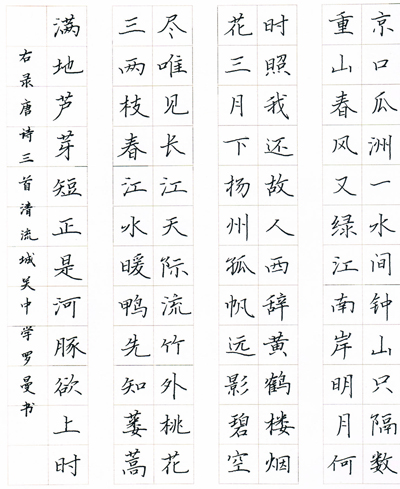 京口瓜洲一水间钟山只隔数
重山春风又绿江南岸明月何
时照我还故人西辞黄鹤楼烟
花三月下杨州孤帆远影碧空
尽唯见长江天际流竹外桃花
三两枝春江水暖鸭先知蒌蒿
满地芦芽短正是河豚欲上时
右录唐诗三首清流城关中学罗曼书